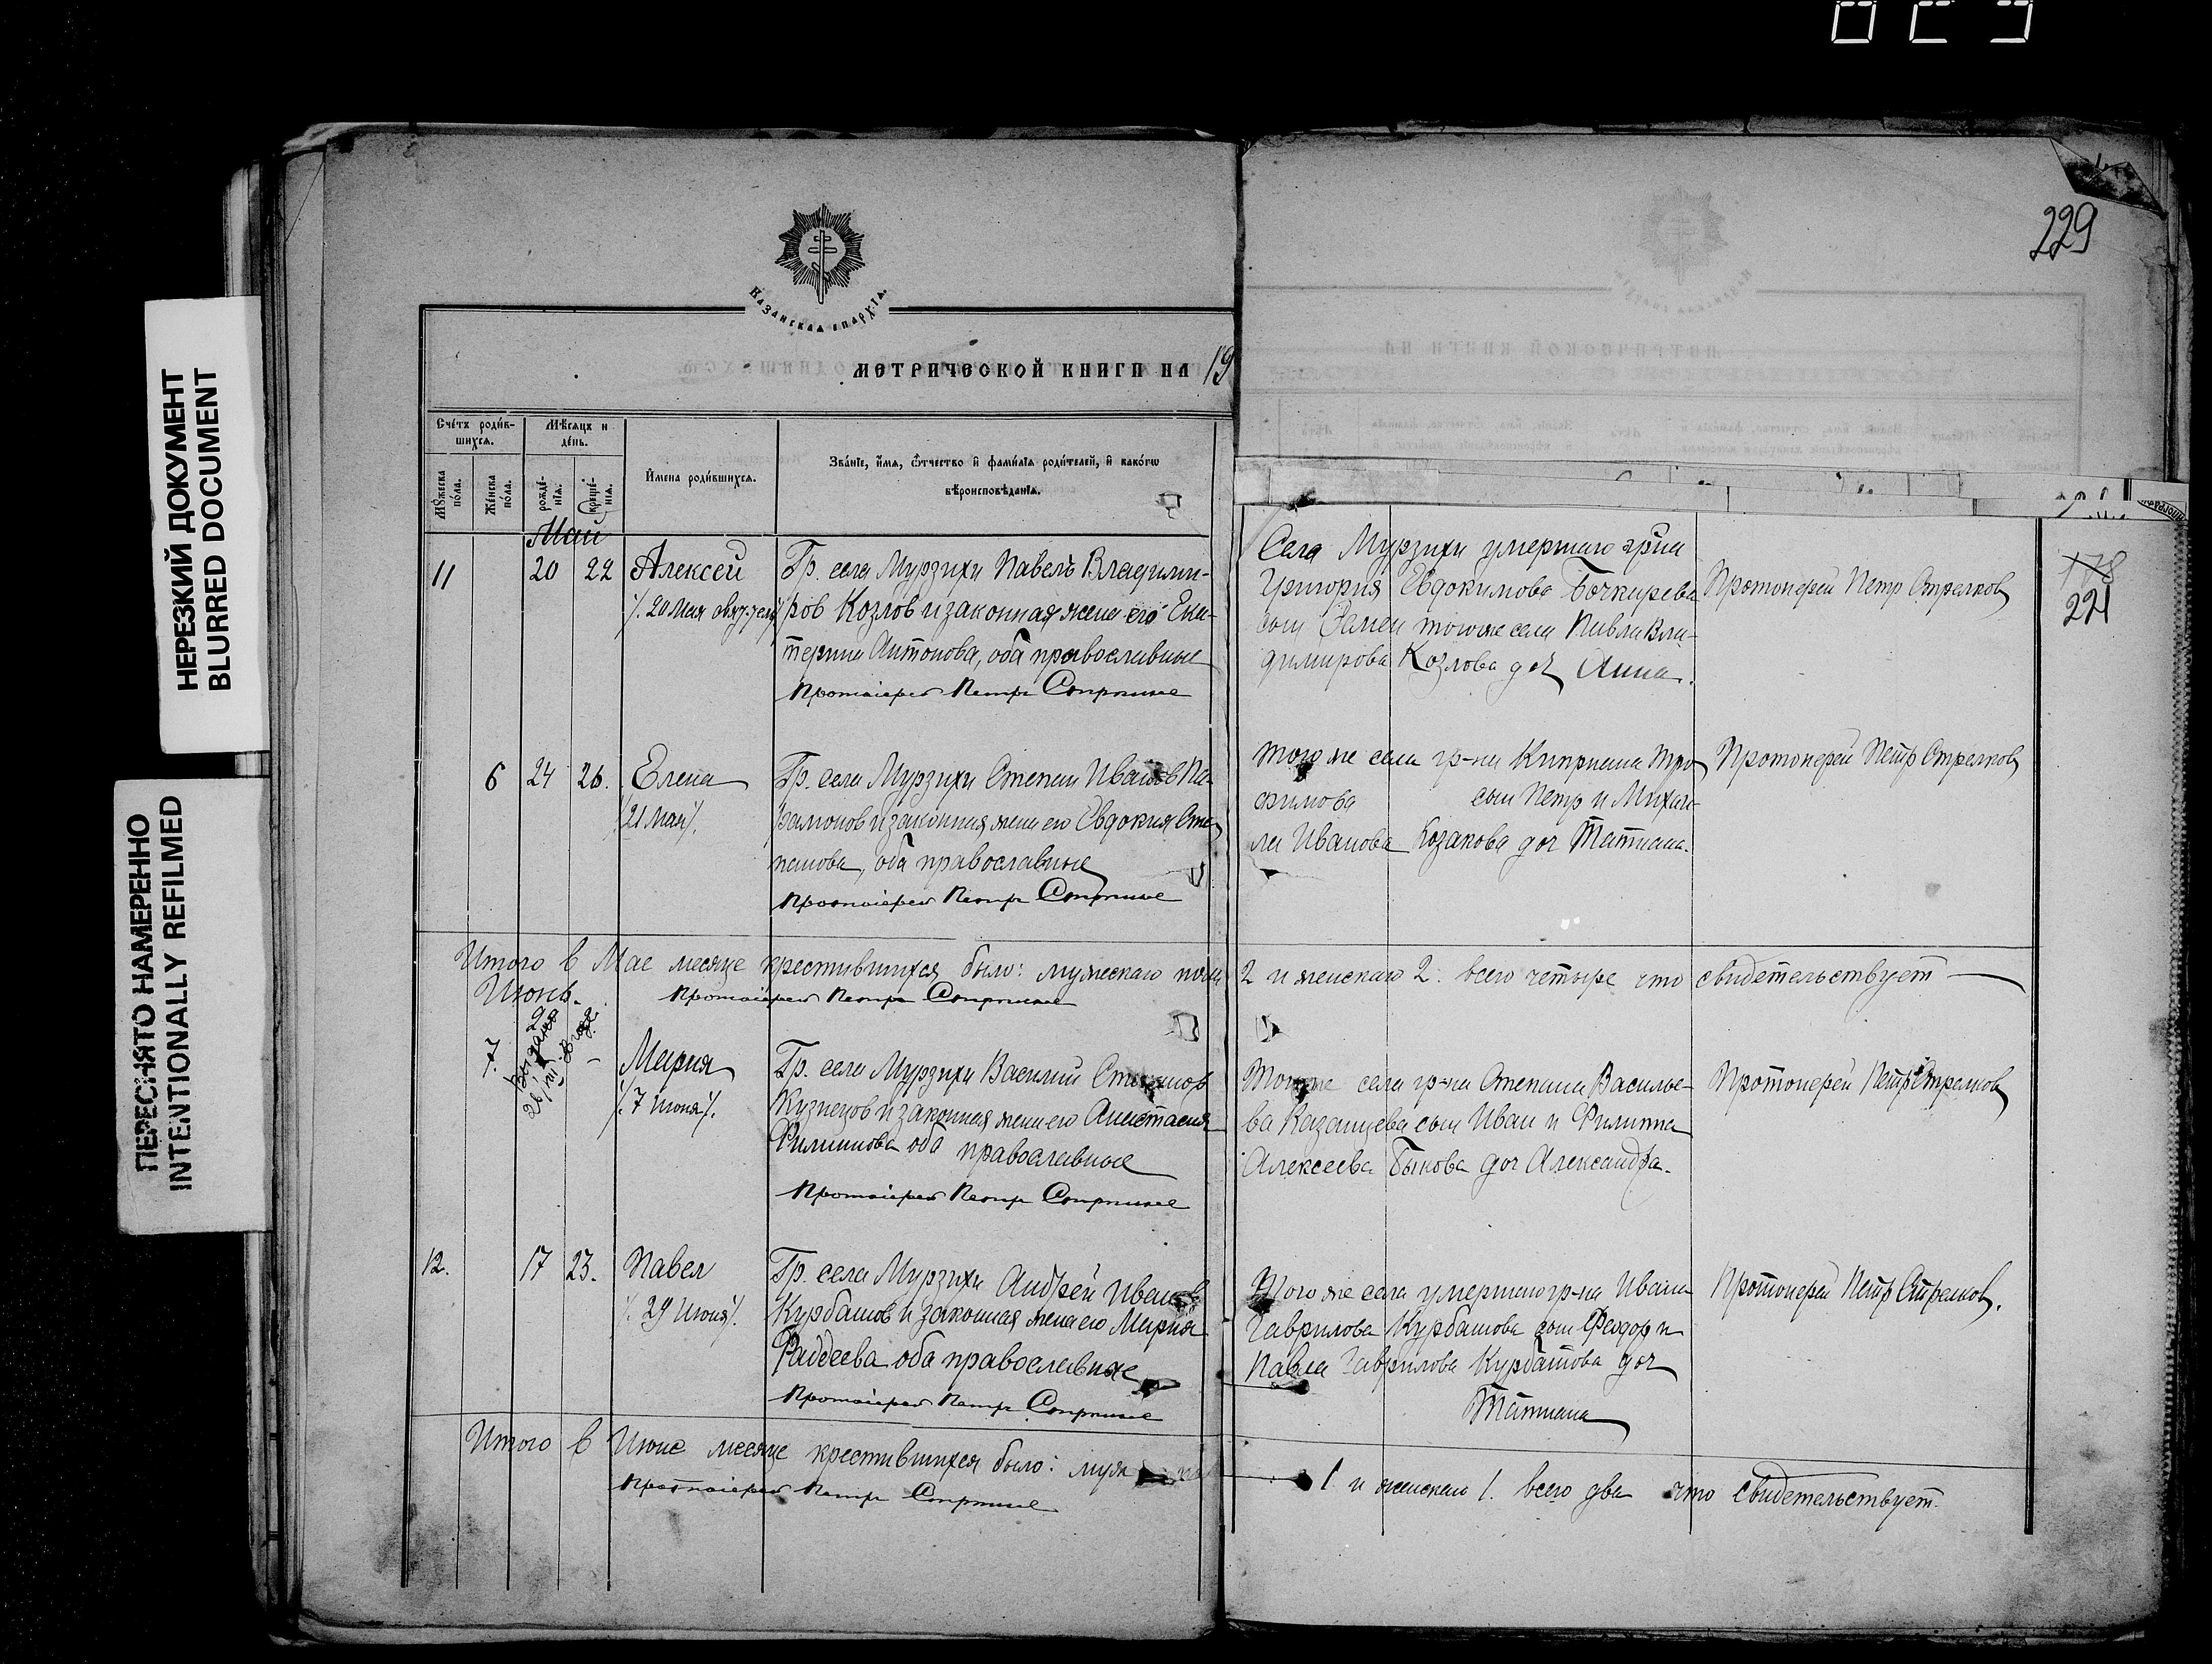 НЕРЕЗКИЙ ДОКУМЕНТ
BLURRED DOCUMENT
ПЕРЕСНЯТО НАМЕРЕННО
INTENTIONALLY REFILMED
229
Казанская епархїа.
МЕТРИЧЕСКОЙ КНИГИ НА 19
Счетъ родив-
шихся.
Мѣсяцъ и
день.
Мужеска
пола.
Женска
пола.
рожде-
нїя.
креще-
нїя.
Имена родившихся.
Званїе, имя, отчество и фамилїя родителей, и какогω
вѣроисповѣданїя.
Май
11 20 22 Алексей
Гр. села Мурзихи Павелъ Владими-
ров Козлов и законная жена его Ека-
терина Антонова, оба православные
Протоіерей Петръ
Села Мурзихи умершаго гр-на
Григория Евдокимова Бочкарева
сын Семен того же села Павла Вла-
димирова Козлова доч Анна.
Протоиерей Петр Стрелков
178
221
6 24 26. Елена
/21 Мая/.
Гр. села Мурзихи Степан Иванов Па-
рамонов и законная жена его Евдокия Сте-
панова, оба православные
Протоіерей Петръ
того же села гр-на Киприана Тро-
фимова сын Петр и Михаи-
ла Иванова Козакова доч Татиана.
Протоиерей Петр Стрелков
Итого в Мае месяце крестившихся было: мужескаго пола 2 и женскаго 2. всего четыре что свидетельствует
Протоіерей Петръ
Июнь.
7. Мария
/.7 июня/.
Гр. села Мурзихи Василий Степанов
Кузнецов и законная жена его Анастасия
Филиппова оба православные
Протоіерей Петръ
Того же села гр-на Степана Василье-
ва Казанцева сын Иван и Филиппа
Алексеева Быкова доч Александра.
Протоиерей Петр Стрелков
12. 17 23. Павел
/. 29 Июня/.
Гр. села Мурзихи Андрей Иванов
Курбатов и законная жена его Мария
Фаддеева оба православные
Протоіерей Петръ
Того же села умершаго гр-на Ивана
Гаврилова Курбатова сын Феодор и
Павла Гаврилова Курбатова доч
Татиана
Протоиерей Петр Стрелков.
Итого в Июне месяце крестившихся было: муж 1 и женскаго 1. всего два что свидетельствует.
Протоіерей Петръ